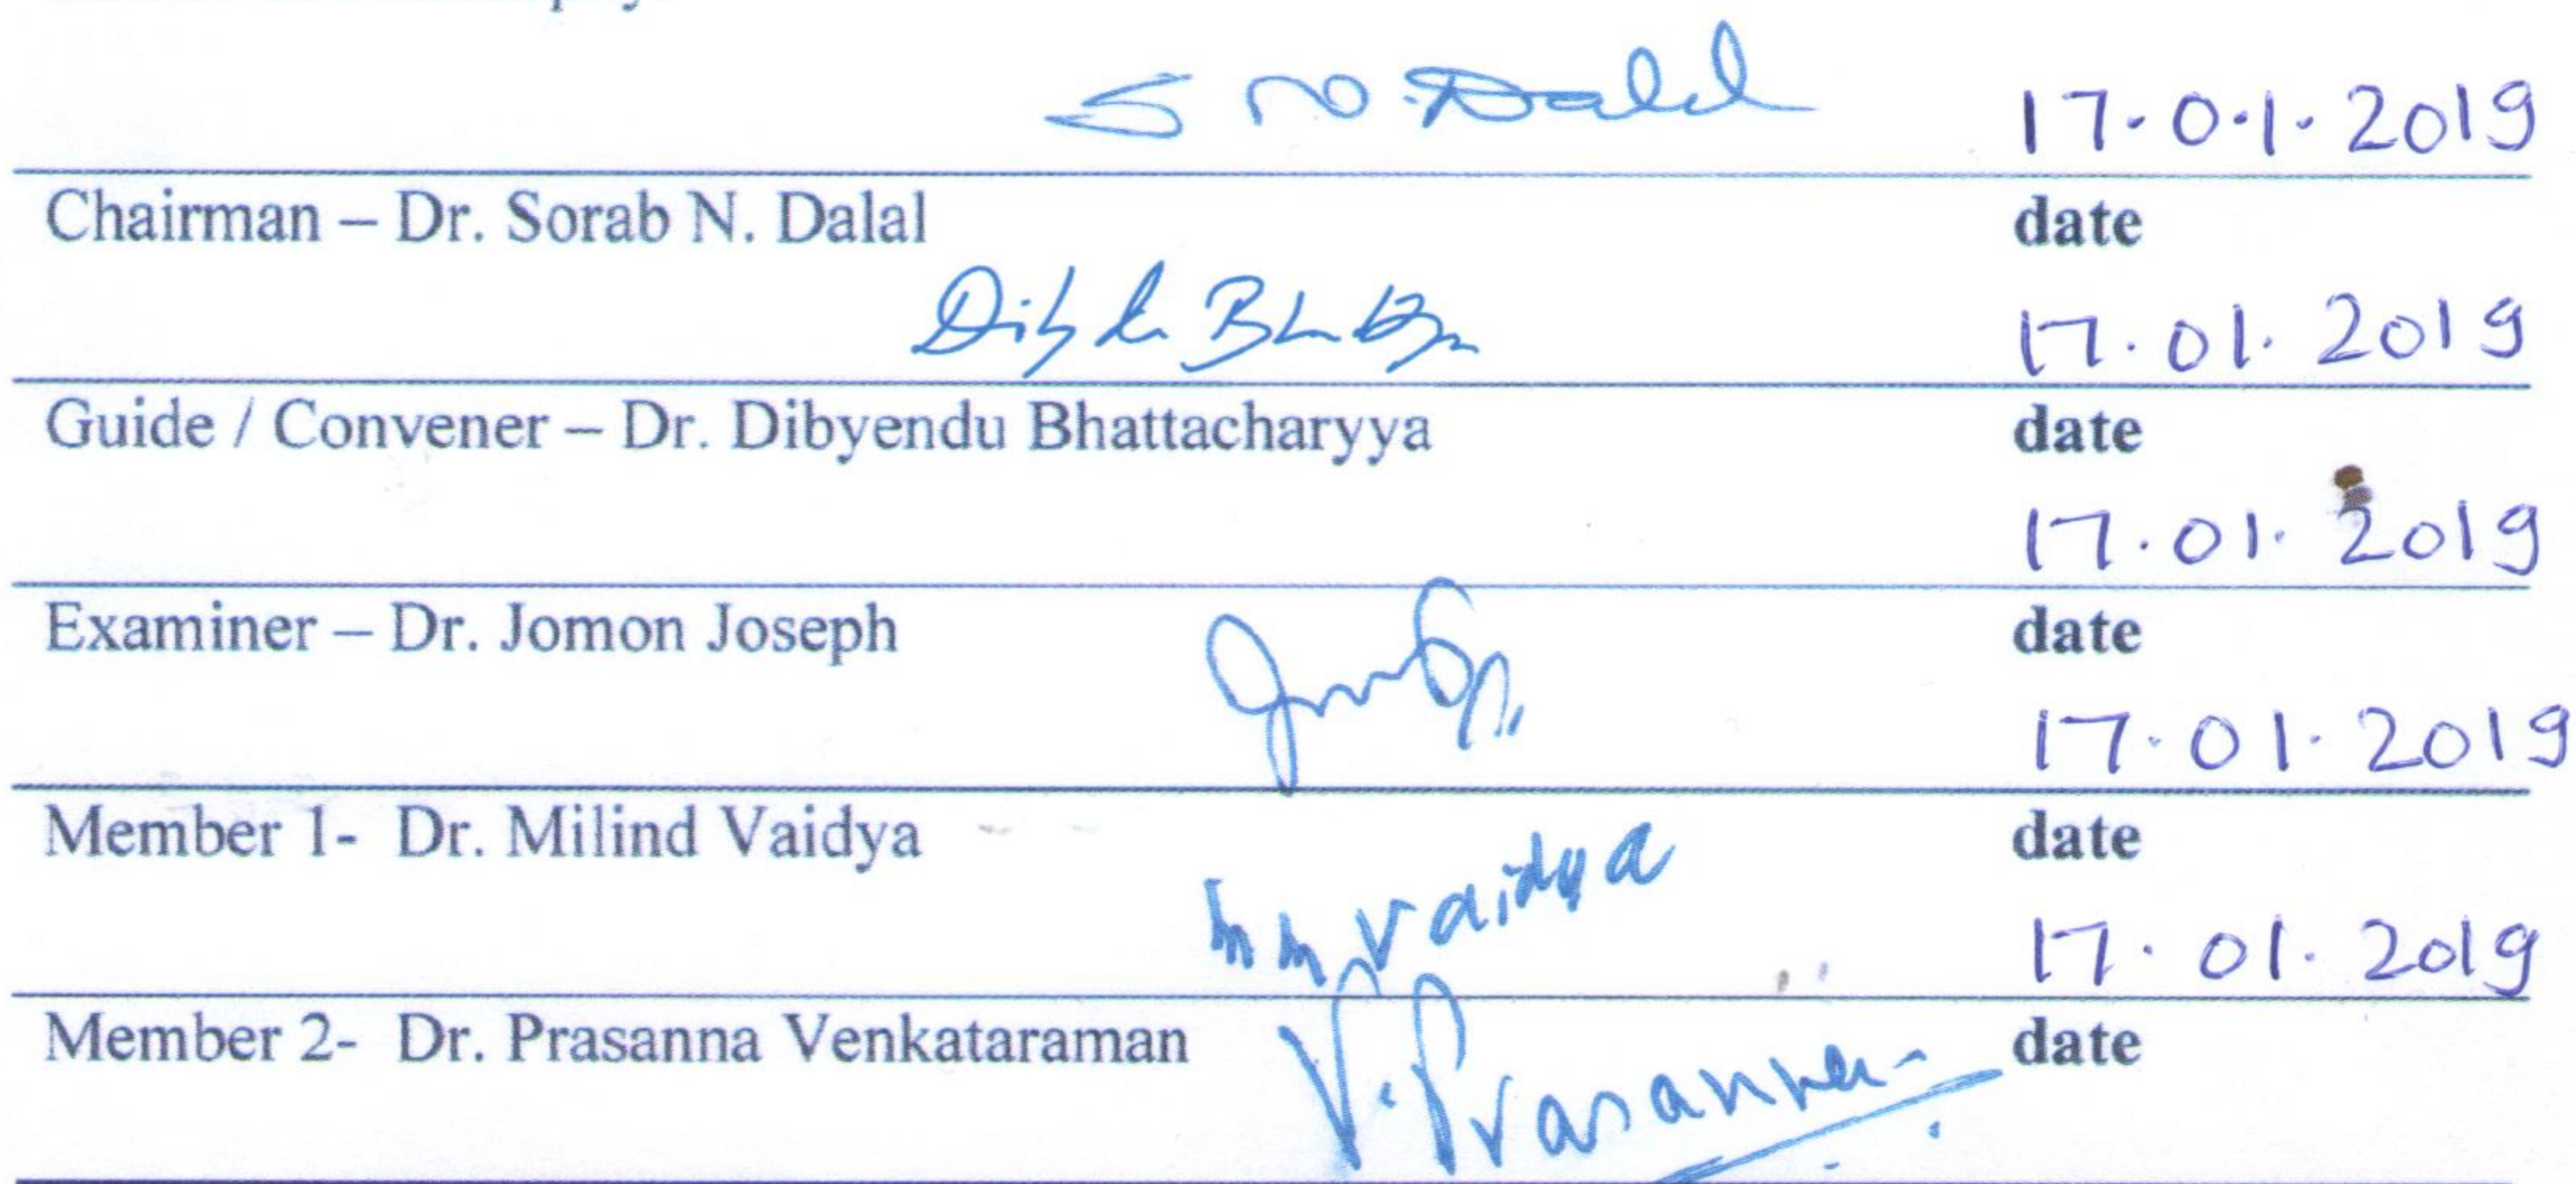 S N. Dalal 17.0.1.2019
Chairman – Dr. Sorab N. Dalal date
17.01.2019
Guide / Convener – Dr. Dibyendu Bhattacharyya date
17.01.2019
Examiner – Dr. Jomon Joseph date
17.01.2019
Member 1- Dr. Milind Vaidya date
m m vaidya 17.01.2019
Member 2- Dr. Prasanna Venkataraman date
V. Prasanna